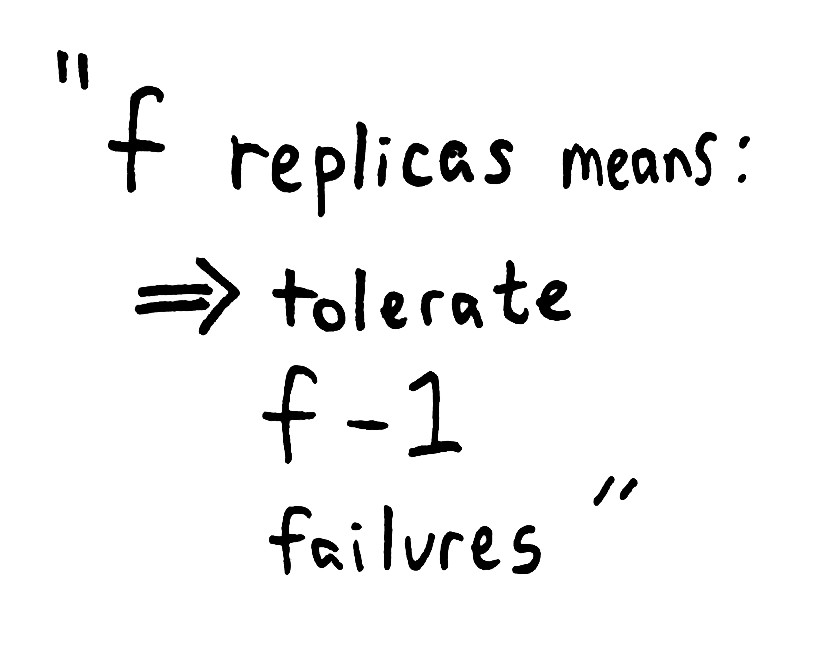 "f replicas means:
⇒ tolerate
f-1
failures"